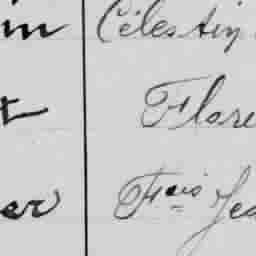 in Célestin
t Flore
er Fcis Jea